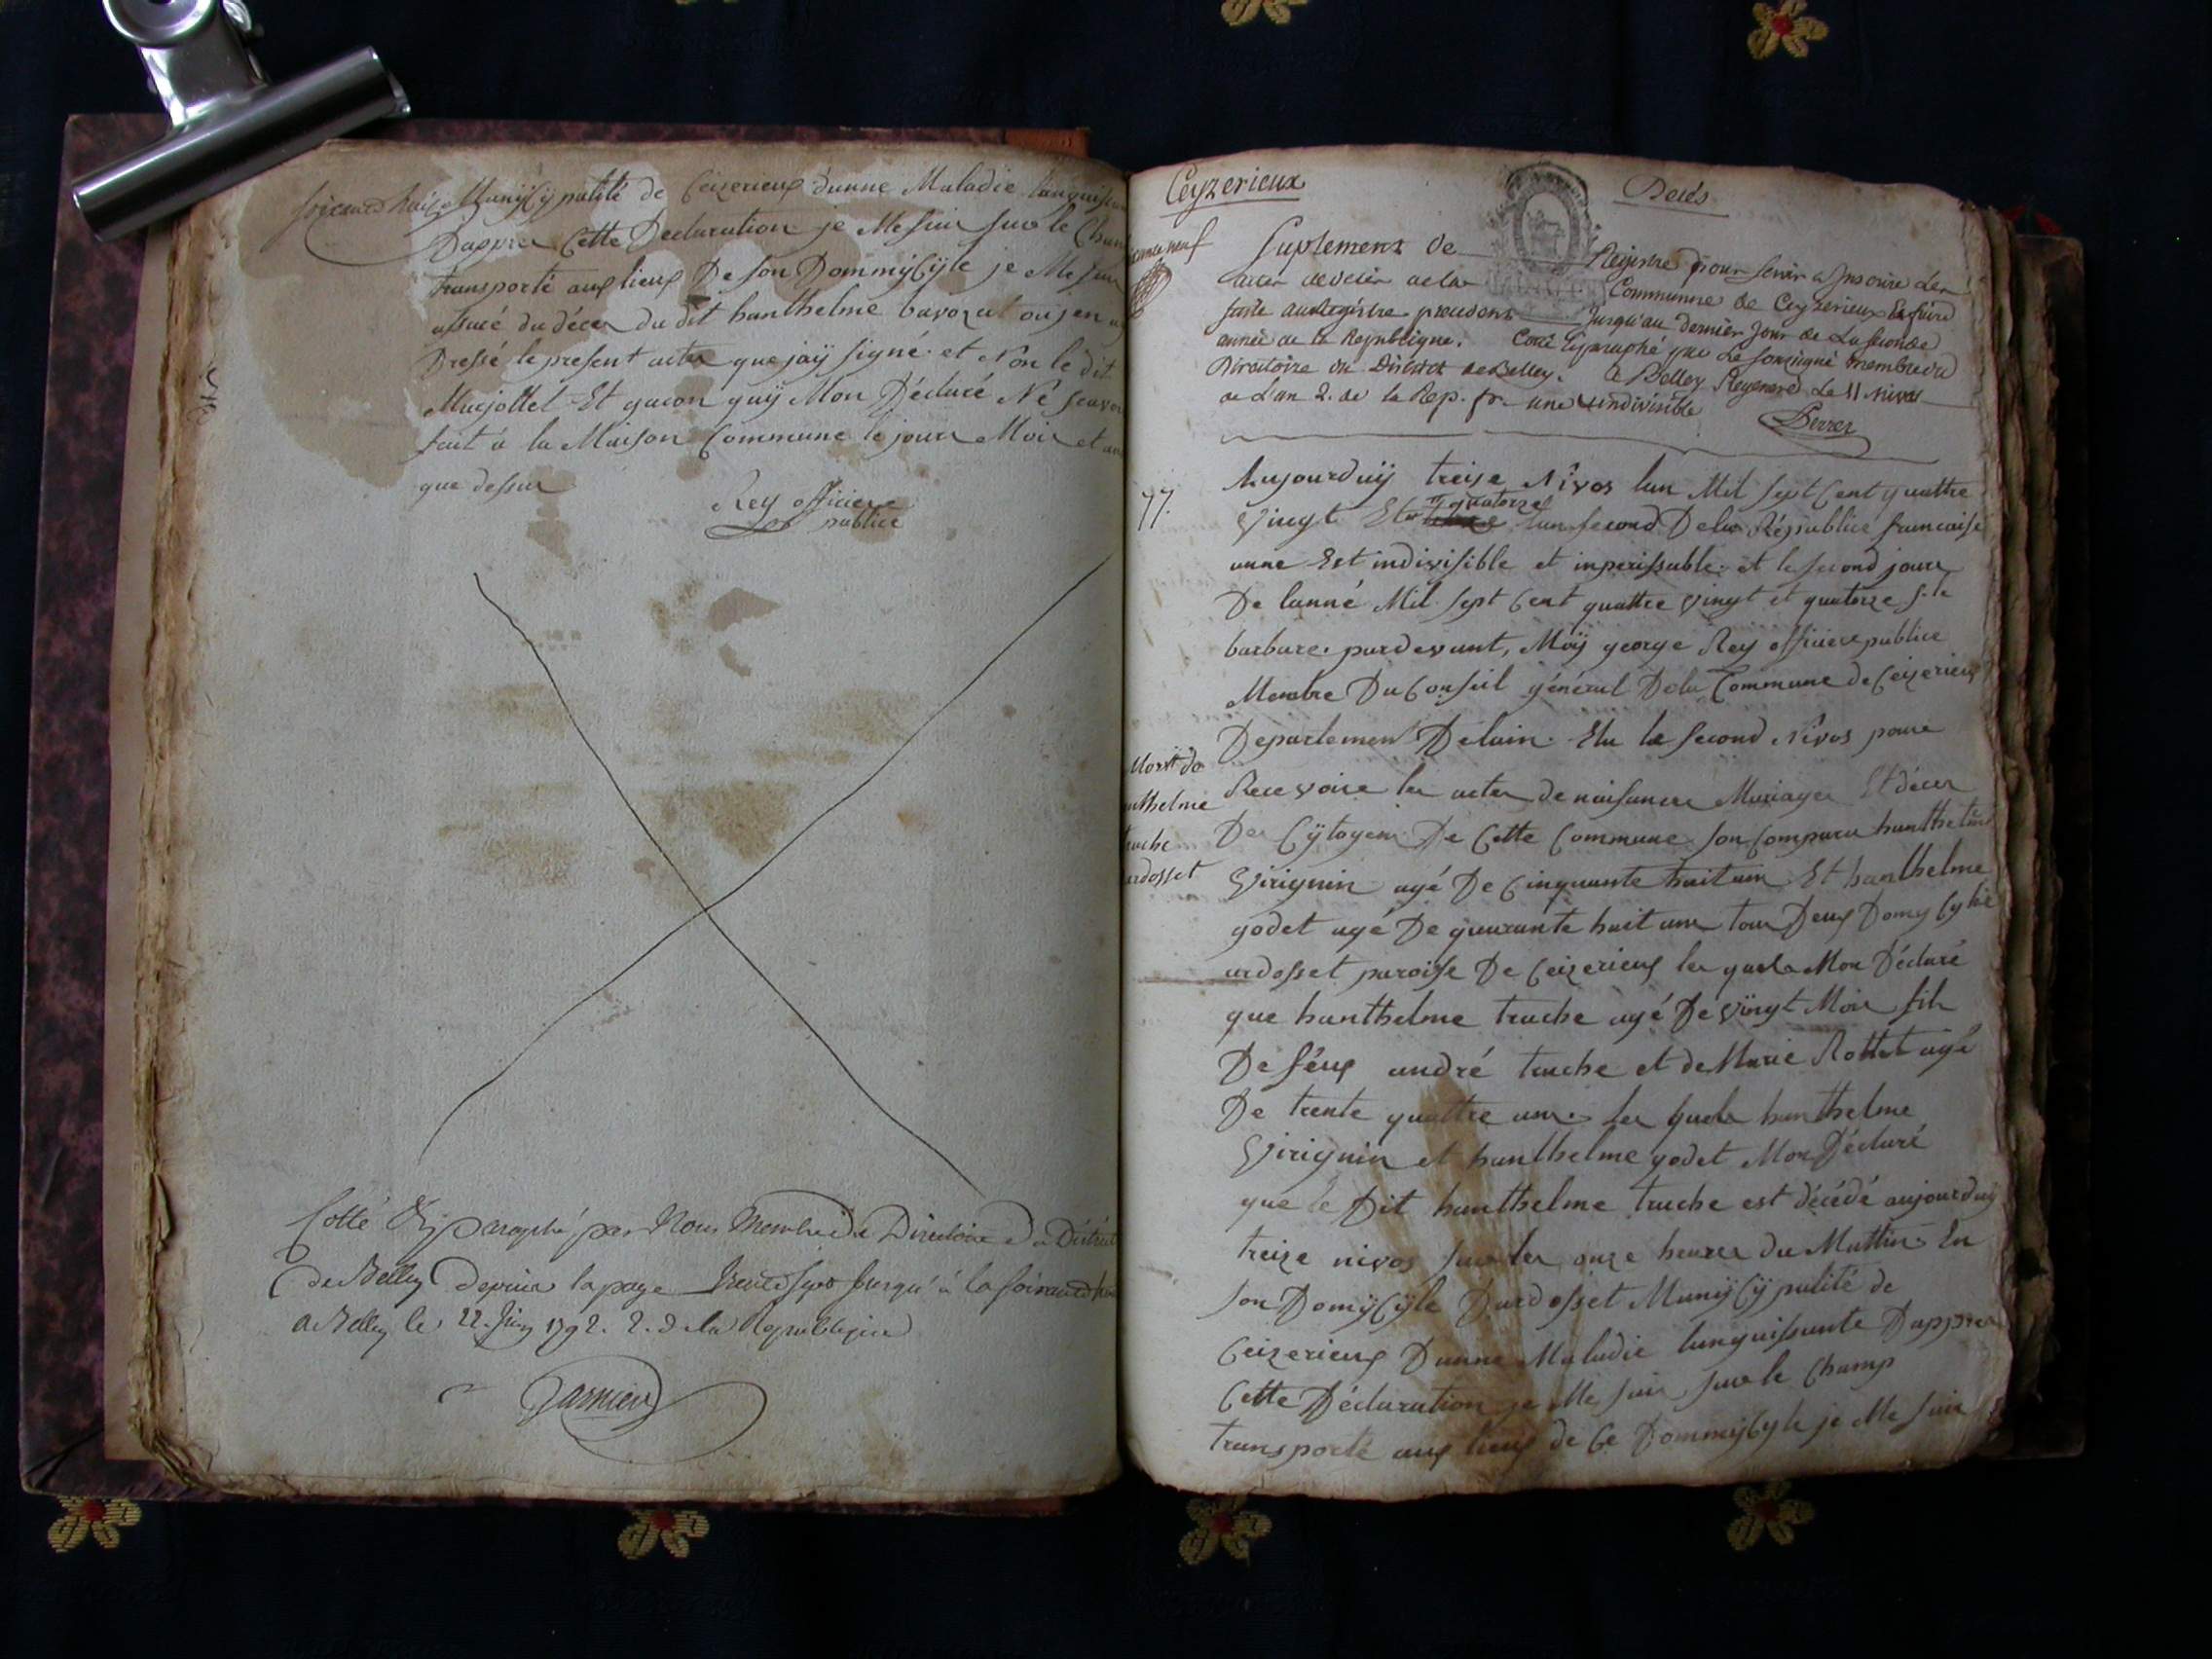 Munijcypalité de Ceizerieux dunne Maladie
Dappres Cette Declaration je Me suis sur le
transporté aux lieux De son Dommijcijle je Me suis
assuré du déces du dit hanthelme bavozat
Dressé le present actes que jaij signé et Non le dit
Marjollet Et qui Mon Déclaré Ne
fait à la Maison Commune le jour Mois et
que dessus
Rey officiere
publice
Cotté & paraphé par Nous Membre du Directoire du
de Belley depuis la page jusqu'à la
A Belley le 22 1792. 2. de la Republique
Ceyzerieux
Décés
neuf
Suplement de Registre pour servir a Inscrire Les
actes de décès de la Communne de Ceyzerieux
faite au Registre précédent jusqu'au dernier jour de La seconde
année de la République. Coté Et paraphé par Le soussigné membre du
Directoire du District de Belley. A Belley Le 11 nivos
de L'an 2. de la Rép. fr. une & indivisible
Perret
77.
Aujourduij treise Nivos lan Mil sept Cent quattre
Vingt Et quatorze lan second De la République francaise
unne Est indivisible et inperissable. et le second jour
De lanné Mil sept Cent quattre Vingt et quatorze
barbare. pardevant, Moij george Rey officiere publice
Membre Du Conseil général De la Commune de Ceizerieux
Departement Delain. Elu le second Nivos pour
Recevoire les actes de naisances Mariages Et déces
Des Cijtoyens De Cette Commune son Comparu hanthelme
Virignin agé De Cinquante huit ans Et hanthelme
godet agé De quarante huit ans tous Deux
ardosset paroisse De Ceizerieux les quels Mon Déclaré
que hanthelme truche agé De Vingt Mois fils
De féux andré truche et de Marie Rottet agé
De trente quattre ans. les quels hanthelme
Virignin et hanthelme godet Mon Déclaré
que le Dit hanthelme truche est décédé aujourduij
treize nivos sur les onze heures du Mattin En
son Domijcijle Dardosset Munijcijpalité de
Ceizerieux Dunne Maladie languissante Dappres
Cette Déclaration je Me suis sur le Champ
transporté aux lieux de Ce Dommijcijle je Me suis
Mort de
nthelme
ruche
ardosset